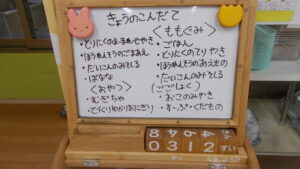 きょうのこんだて
・とりにくのマーマレードやき
・ほうれんそうのごまあえ
・だいこんのみそしる
・ばなな
〈おやつ〉
・むぎちゃ
・てづくりゆかりおにぎり
〈ももぐみ〉
・ごはん
・とりにくのてりやき
・ほうれんそうのあえもの
・だいこんのみそしる
(ごごしょく)
・おこのみやき
・すーぷ・くだもの
0312